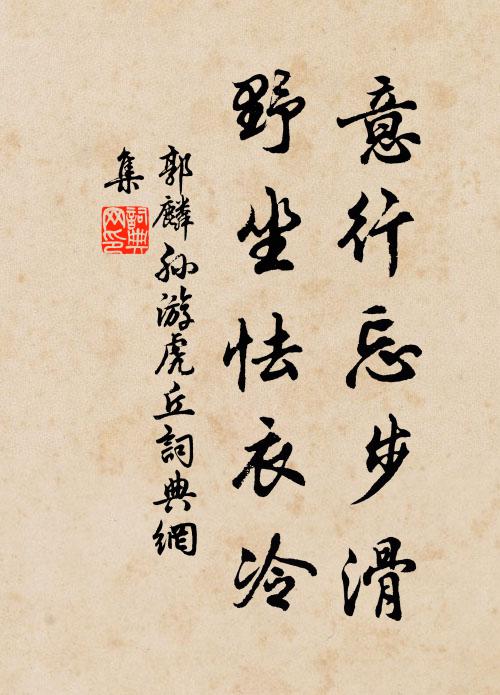 意行忘步滑
野坐怯衣冷
郭麟孙游虎丘詞典網
集
詞典網印